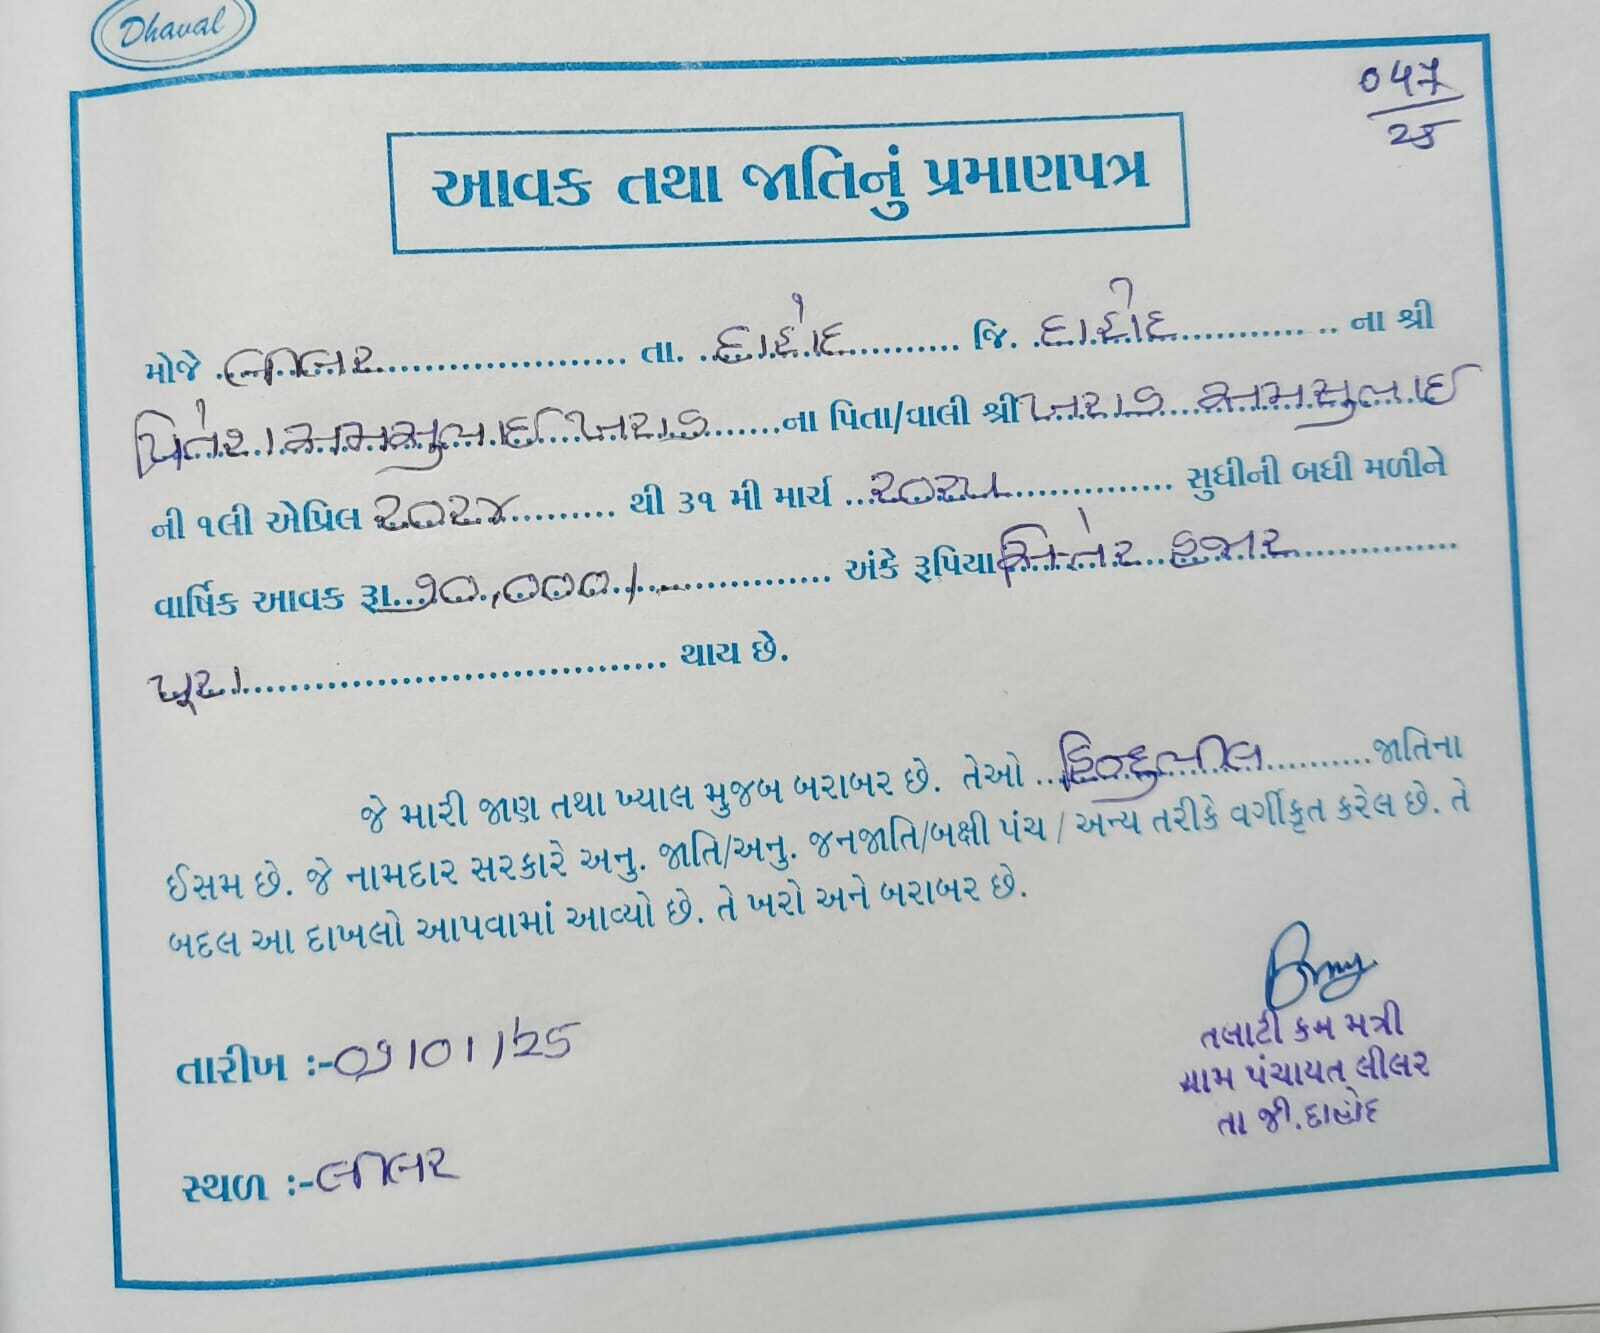 Dhaval
047
25
આવક તથા જાતિનું પ્રમાણપત્ર
મોજે લીલર તા. દાહોદ જિ. દાહોદ ના શ્રી
પ્રિતેશ સમસુભાઈ ખરાડ ના પિતા/વાલી શ્રી ખરાડ સમસુભાઈ
ની ૧લી એપ્રિલ ૨૦૨૪ થી ૩૧ મી માર્ચ ૨૦૨૫ સુધીની બધી મળીને
વાર્ષિક આવક રૂા. ૭૦,૦૦૦/- અંકે રૂપિયા સિત્તેર હજાર
પૂરા થાય છે.
જે મારી જાણ તથા ખ્યાલ મુજબ બરાબર છે. તેઓ હિન્દુભીલ જાતિના
ઈસમ છે. જે નામદાર સરકારે અનુ. જાતિ/અનુ. જનજાતિ/બક્ષી પંચ / અન્ય તરીકે વર્ગીકૃત કરેલ છે. તે
બદલ આ દાખલો આપવામાં આવ્યો છે. તે ખરો અને બરાબર છે.
તલાટી કમ મંત્રી
ગ્રામ પંચાયત લીલર
તા જી.દાહોદ
તારીખ :-
સ્થળ :- લીલર